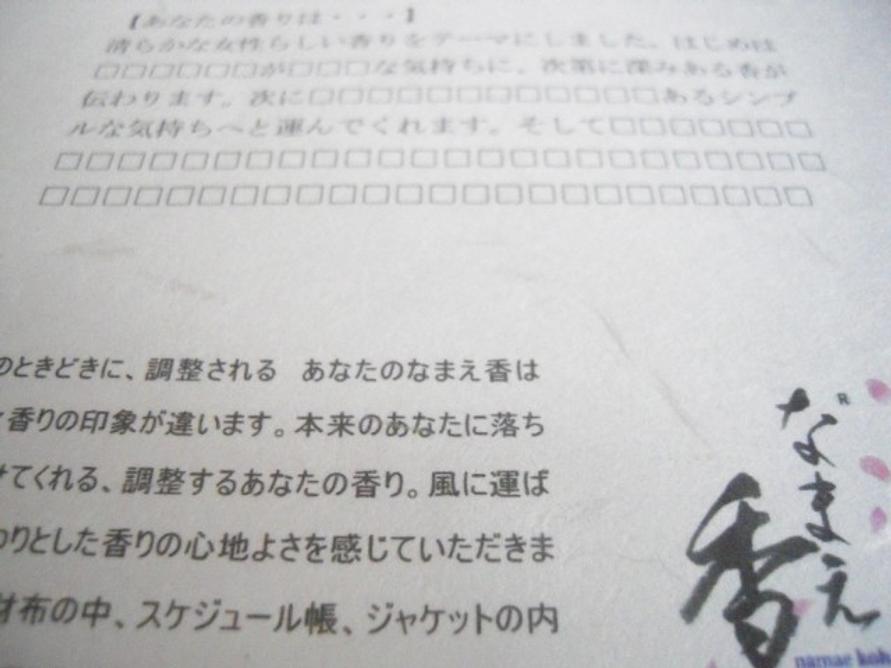 【あなたの香りは・・・】
清らかな女性らしい香りをテーマにしました。はじめは
□□□□□□が□□□な気持ちに、次第に深みある香が
伝わります。次に□□□□□□□□□□□□あるシンプ
ルな気持ちへと運んでくれます。そして□□□□□□□
□□□□□□□□□□□□□□□□□□□□□□□□
□□□□□□□□□□□□□□□□□□□□□□□□
のときどきに、調整される あなたのなまえ香は
香りの印象が違います。本来のあなたに落ち
せてくれる、調整するあなたの香り。風に運ば
わりとした香りの心地よさを感じていただきま
財布の中、スケジュール帳、ジャケットの内
なまえ
香
®
namae koh